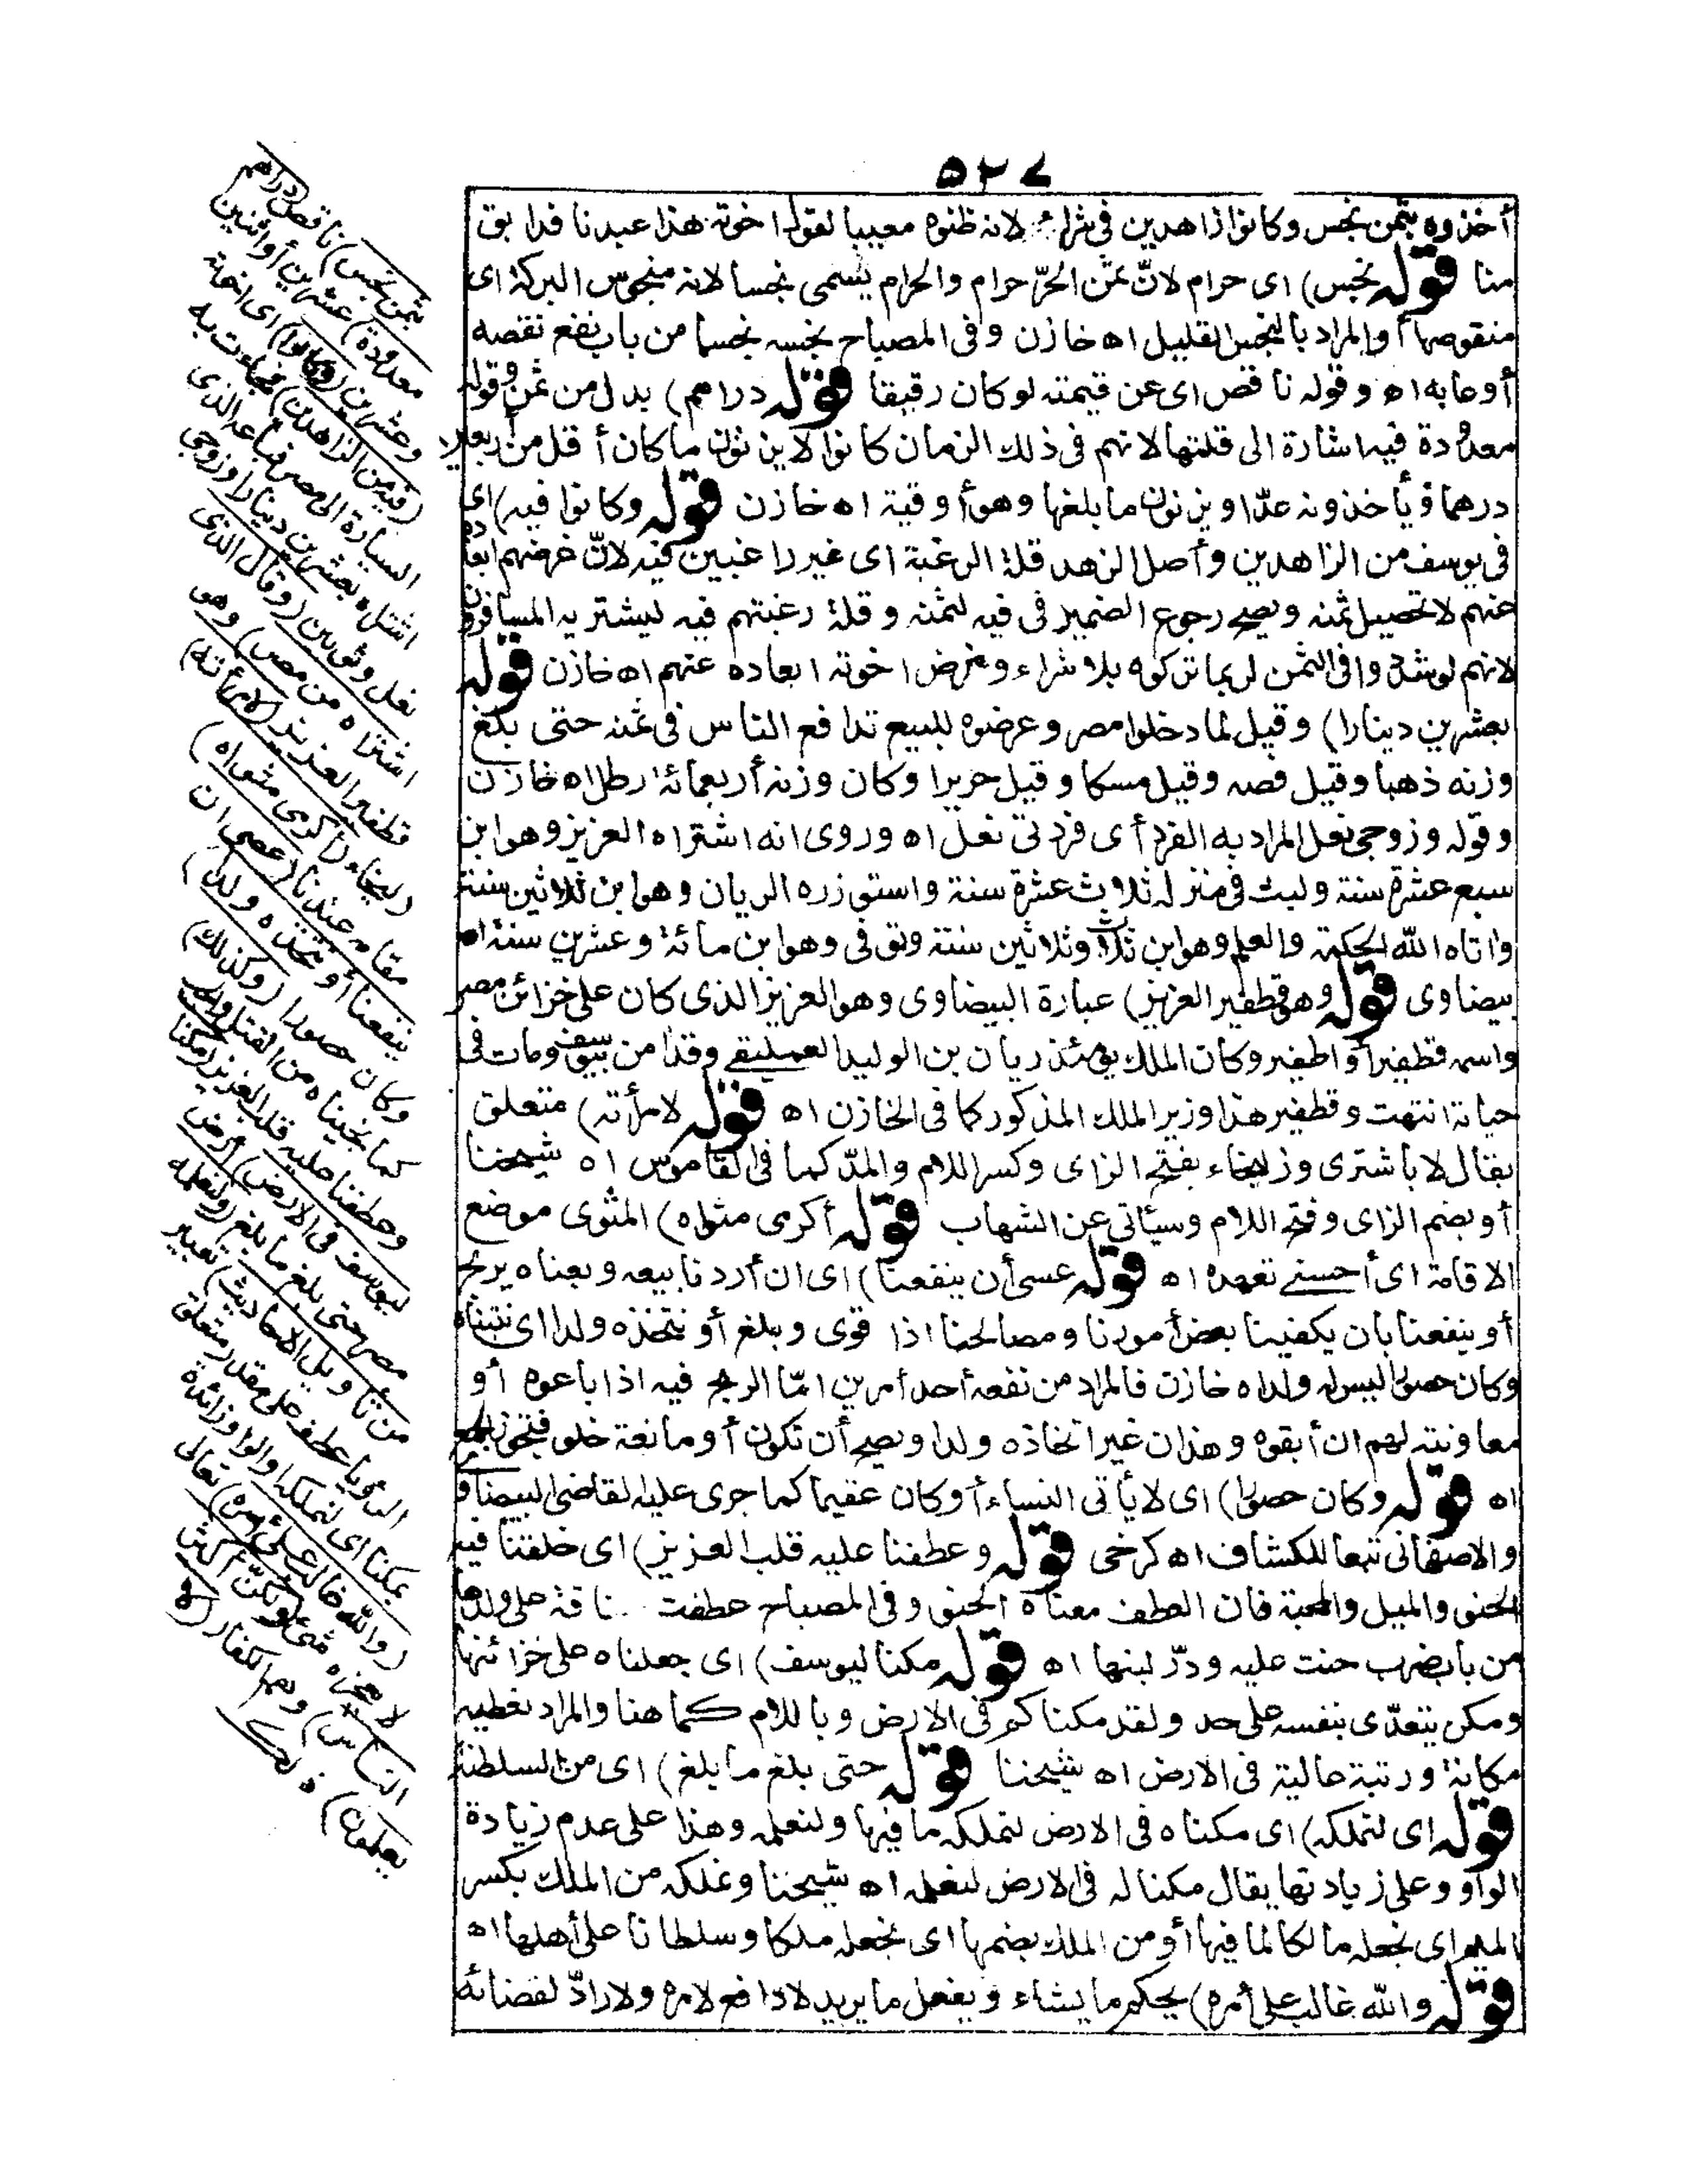 ٥٢٧
أخذوه بثمن بخس وكانوا زاهدين فى شرائه لانه ظنوه معيبا لقول اخوته هذا عبدنا قد ابق
منا قوله بخس) اى حرام لانّ ثمن الحرّ حرام والحرام يسمى بخسا لانه مبخوس البركة اى
منقوصها أو المراد بالبخس القليل اه خازن وفى المصباح بخسه بخسا من باب نفع نقصه
أو عابه اه وقوله ناقص اى عن قيمته لو كان رقيقا قوله دراهم) بدل من ثمن وقوله
معدودة فيه اشارة الى قلتها لانهم فى ذلك الزمان كانوا لا يزنون ما كان أقل من أربعين
درهما ويأخذونه عدّا ويزنون ما بلغها وهو أوقية اه خازن قوله وكانوا فيه) اى
فى يوسف من الزاهدين وأصل الزهد قلة الرغبة اى غير راغبين فيه لانّ غرضهم ابعاده
عنهم لا تحصيل ثمنه ويصح رجوع الضمير فى فيه لثمنه وقلة رغبتهم فيه ليشتريه المسافرون
لانهم لو شدّدوا فى الثمن لربما تركوه بلا شراء وغرض اخوته ابعاده عنهم اه خازن قوله
بعشرين دينارا) وقيل لما دخلوا مصر وعرضوه للبيع تدافع الناس فى ثمنه حتى بلغ
وزنه ذهبا وقيل فضه وقيل مسكا وقيل حريرا وكان وزنه أربعمائة رطل اه خازن
وقوله وزوجى نعل المراد به الفرد أى فردتى نعل اه وروى انه اشتراه العزيز وهو ابن
سبع عشرة سنة ولبث فى منزله ثلاث عشرة سنة واستوزره الريان وهو ابن ثلاثين سنة
واتاه الله الحكمة والعلم وهو ابن ثلاث وثلاثين سنة وتوفى وهو ابن مائة وعشرين سنة اه
بيضاوى قوله وهو قطفير العزيز) عبارة البيضاوى وهو العزيز الذى كان على خزائن مصر
واسمه قطفير أو اطفير وكان الملك يومئذ ريان بن الوليد العمليقى وقد امن بيوسف ومات فى
حياته انتهت وقطفير هذا وزير الملك المذكور كما فى الخازن اه قوله لامرأته) متعلق
بقال لا باشترى وزليخاء بفتح الزاى وكسر اللام والمدّ كما فى القاموس اه شيخنا
أو بضم الزاى وفتح اللام وسيأتى عن الشهاب قوله أكرمى مثواه) المثوى موضع
الاقامة اى أحسنى تعهده اه قوله عسى أن ينفعنا) اى ان أردنا بيعه وبعناه بربح
أو ينفعنا بان يكفينا بعض أمورنا ومصالحنا اذا قوى وبلغ أو نتخذه ولدا اى نتبناه
وكان حصورا ليس له ولد اه خازن فالمراد من نفعه أحد أمرين امّا الربح فيه اذا باعوه أو
معاونته لهم ان أبقوه وهذان غير اتخاذه ولدا ويصح أن تكون أو مانعة خلو فتجوز الجمع
اه قوله وكان حصورا) اى لا يأتى النساء أو كان عقيما كما جرى عليه القاضى البيضاوى
والاصفهانى تبعا للكشاف اه كرخى قوله وعطفنا عليه قلب العزيز) اى خلقنا فيه
الحنو والميل والمحبة فان العطف معناه الحنو وفى المصباح عطفت ناقة على ولدها
من باب ضرب حنت عليه ودرّ لبنها اه قوله مكنا ليوسف) اى جعلناه على خزائنها
ومكن يتعدّى بنفسه على حد ولقد مكناكم فى الارض وباللام كما هنا والمراد نعطيه
مكانة ورتبة عالية فى الارض اه شيخنا قوله حتى بلغ ما بلغ) اى من السلطنة
قوله اى لنملكه) اى مكناه فى الارض لنملكه ما فيها ولنعلمه وهذا على عدم زيادة
الواو وعلى زيادتها يقال مكنا له فى الارض لنعلمه اه شيخنا ونملكه من الملك بكسر
الميم اى نجعله مالكا لما فيها أو من الملك بضمها اى نجعله ملكا وسلطانا على أهلها اه
قوله والله غالب على أمره) يحكم ما يشاء ويفعل ما يريد لا دافع لامره ولا رادّ لقضائه
بثمن بخس) ناقص (دراهم
معدودة) عشرين أو اثنين
وعشرين (وكانوا) اى اخوته
(فيه من الزاهدين) فجاءت به
السيارة الى مصر فباعه الذى
اشتراه بعشرين دينارا وزوجى
نعل وثوبين (وقال الذى
اشتراه من مصر) وهو
قطفير العزيز (لامرأته)
زليخاء (أكرمى مثواه)
مقامه عندنا (عسى ان
ينفعنا أو نتخذه ولدا)
وكان حصورا (وكذلك)
كما نجيناه من القتل والجب
وعطفنا عليه قلب العزيز (مكنا
ليوسف فى الارض) أرض
مصر حتى بلغ ما بلغ (ولنعلمه
من تأويل الاحاديث) تعبير
الرؤيا عطف على مقدر متعلق
بمكنا اى لنملكه والواو زائدة
(والله غالب على أمره) تعالى
لا يعجزه شئ (ولكنّ أكثر
الناس) وهم الكفار (لا
يعلمون) ذلك